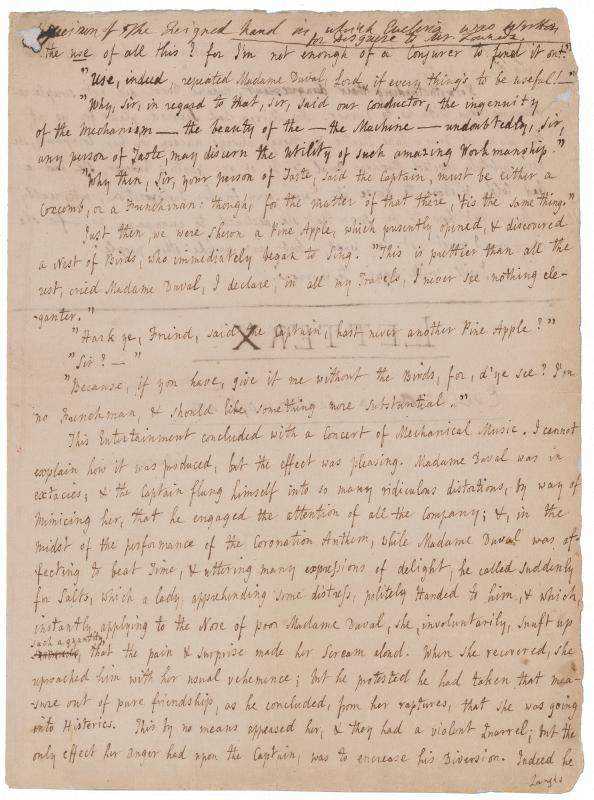 Specimen of the Feigned hand in which Evelina was written
for disguise to Mr. Lowndes
the use of all this? for I'm not enough of a Conjurer to find it out."
"Use, indeed, repeated Madame Duval, Lord, if every thing's to be useful! —"
"Why, Sir, in regard to that, Sir, said our conductor, the ingenuity
of the Mechanism — the beauty of the — the Machine — undoubtedly, Sir,
any person of Taste, may discern the utility of such amazing Workmanship."
"Why then, Sir, your person of Taste, said the Captain, must be either a
Coxcomb, or a Frenchman: though, for the matter of that there, 'tis the same thing."
Just then, we were shewn a Pine Apple, which presently opened, & discovered
a Nest of Birds, who immediately began to Sing. "This is prettier than all the
rest, cried Madame Duval, I declare, in all my Travels, I never see nothing ele-
-ganter."
"Hark ye, Friend, said the Captain, hast never another Pine Apple?"
"Sir? — "
"Because, if you have, give it me without the Birds, for, d'ye see? I'm
no Frenchman, & should like something more substantial."
This Entertainment concluded with a Concert of Mechanical Music. I cannot
explain how it was produced, but the effect was pleasing. Madame Duval was in
extacies; & the Captain flung himself into so many ridiculous distortions, by way of
Mimicing her, that he engaged the attention of all the Company; &, in the
midst of the performance of the Coronation Anthem, while Madame Duval was af-
fecting to beat Time, & uttering many expressions of delight, he called suddenly
for Salts, which a lady, apprehending some distress, politely Handed to him, & which,
instantly applying to the Nose of poor Madame Duval, she, involuntarily, snuft up
such a quantity
that the pain & surprise made her scream aloud. When she recovered, she
reproached him with her usual vehemence; but he protested he had taken that mea-
-sure out of pure friendship, as he concluded, from her raptures, that she was going
into Hysterics. This by no means appeased her, & they had a violent Quarrel; but the
only effect her anger had upon the Captain, was to encrease his Diversion. Indeed he
Laughs